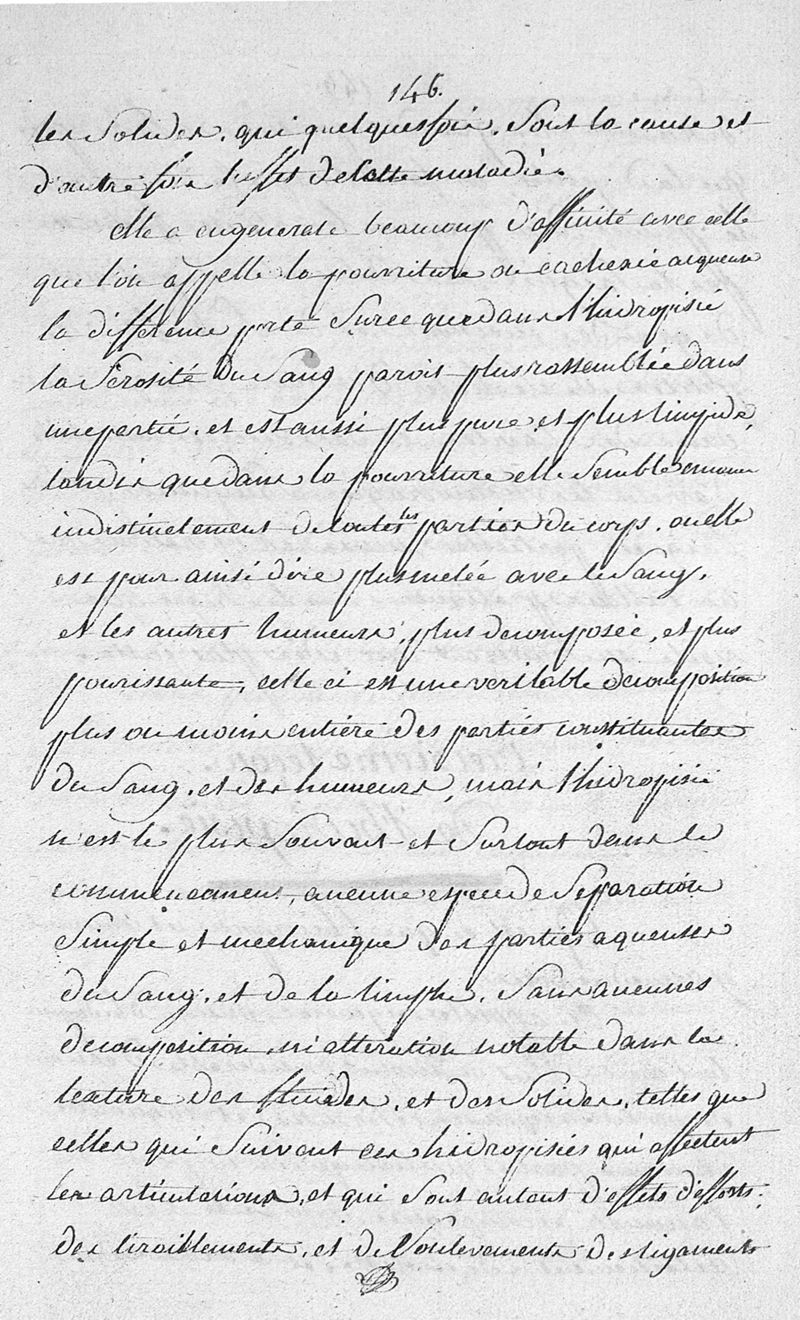 146.
les Solides, qui quelques fois, Sont la cause et
d'autre fois l'effet de cette maladie.
elle a en generale beaucoup d'affinité avec celle
que l'on appelle la pourriture ou cachexie aqueuse
la difference porte Surce que dans l'hidropisie
la Serosité du Sang paroit plus rassemblée dans
une partie, et est aussi plus pure et plus limpide,
tandis que dans la pourriture elle Semble
indistinctement de toutes les parties du corps, ou elle
est pour ainsi dire plus melée avec le Sang,
et les autres humeurs, plus decomposée, et plus
pourissante, celle ci est une veritable decomposition
plus ou moins entiére des parties constituantes
du Sang, et des humeurs, mais l'hidropisie
n'est le plus Souvent et Surtout dans le
commencement, aucune espece de Separation
Simple et mechanique des parties aqueuses
du Sang, et de la limphe, Sans aucunes
decomposition, ni alteration notable dans la
texture des fluides, et des Solides, telles que
celles qui Suivent ces hidropisies qui affectent
les articulations, et qui Sont autant d'effets d'efforts,
des tiraillements, et de Soulevements des ligaments